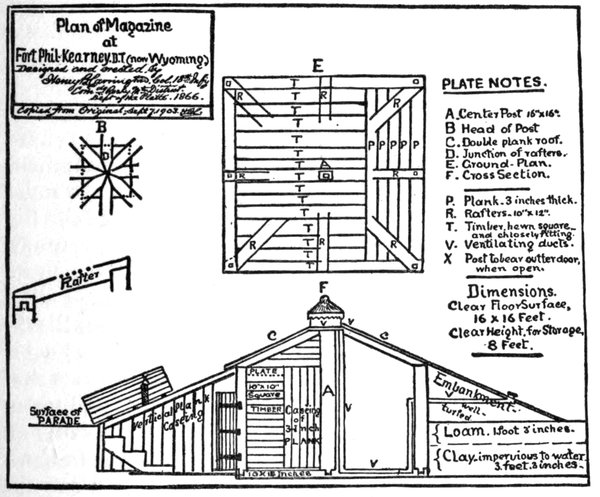 Plan of Magazine
at
Fort Phil-Kearney. D.T. (now Wyoming)
Designed and erected, by
Henry B Carrington, Col. 18th Infy
Com
Dept of the Platte. 1866.
Copied from Original, Sept 7, 1903.
B
D
Rafter
E
T
T
T
T
T
T
T
T
T
R
R
R
R
R
R
R
R
A
P P P P P
PLATE NOTES.
A. Center Post 15"x16".
B Head of Post
C. Double plank roof.
D. Junction of rafters.
E. Ground-Plan.
F. Cross Section.
P. Plank. 3 inches thick.
R. Rafters. 10"x 12".
T. Timber, hewn square
and chlosely fitting.
V. Ventilating ducts.
X Post to bear outter door,
when open.
Dimensions.
Clear Floor Surface,
16 x 16 Feet.
Clear Height, for Storage,
8 Feet.
F
V V V
C C
X
Surface of
PARADE
Vertical Plank
Casing
PLATE
10"x10"
Square
TIMBER
Casing
of
3 inch
PLANK
A
V
V
10 x 15 inches
Embankment.
V well
turfed
Loam. 1 foot 3 inches.
Clay. impervious to water
3. feet. 3 inches.